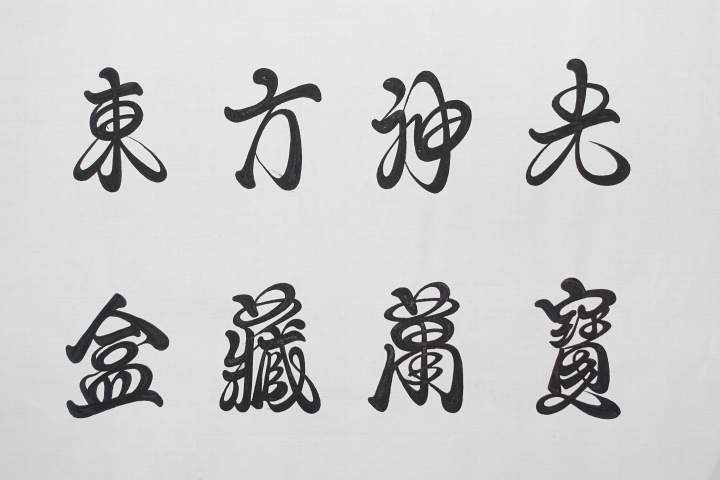 東方神光
盒藏萬寶